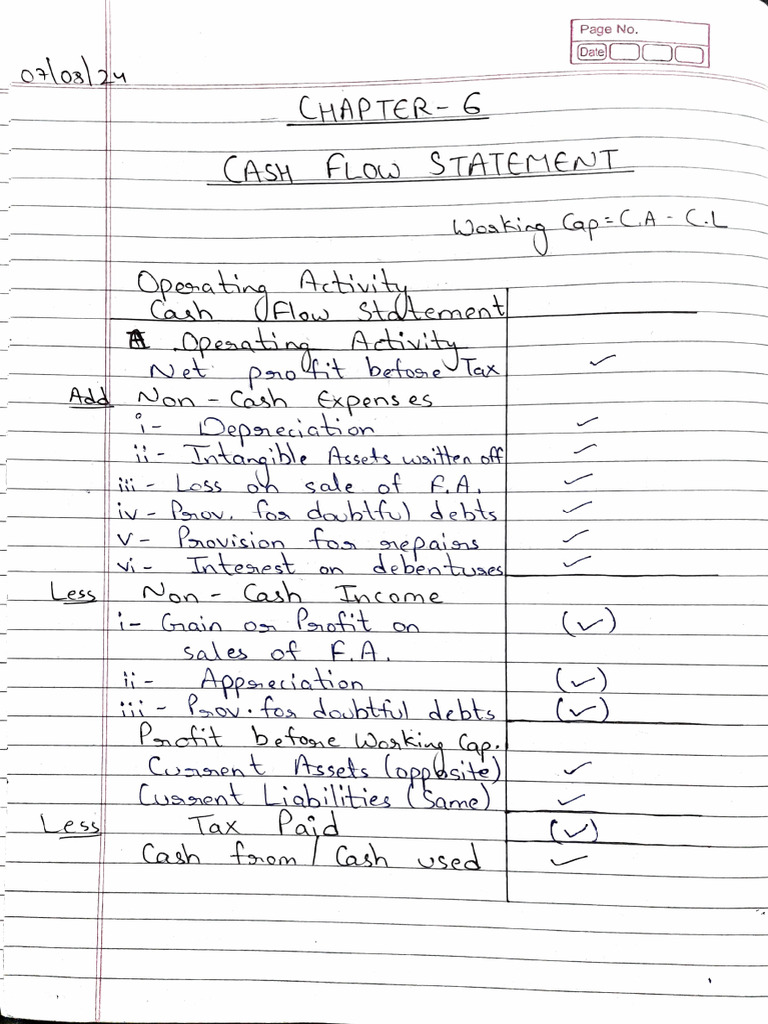 Page No.
Date
07/08/24
CHAPTER - 6
CASH FLOW STATEMENT
Working Cap = C.A - C.L
Operating Activity
Cash Flow Statement
A Operating Activity
Net profit before Tax ✓
Add Non - Cash Expenses
i - Depreciation ✓
ii - Intangible Assets written off ✓
iii - Loss on sale of F.A. ✓
iv - Prov. for doubtful debts ✓
v - Provision for repairs ✓
vi - Interest on debentures ✓
Less Non - Cash Income
i - Grain or Profit on (✓)
sales of F.A.
ii - Appreciation (✓)
iii - Prov. for doubtful debts (✓)
Profit before Working Cap.
Current Assets (opposite) ✓
Current Liabilities (Same) ✓
Less Tax Paid (✓)
Cash from / Cash used ✓